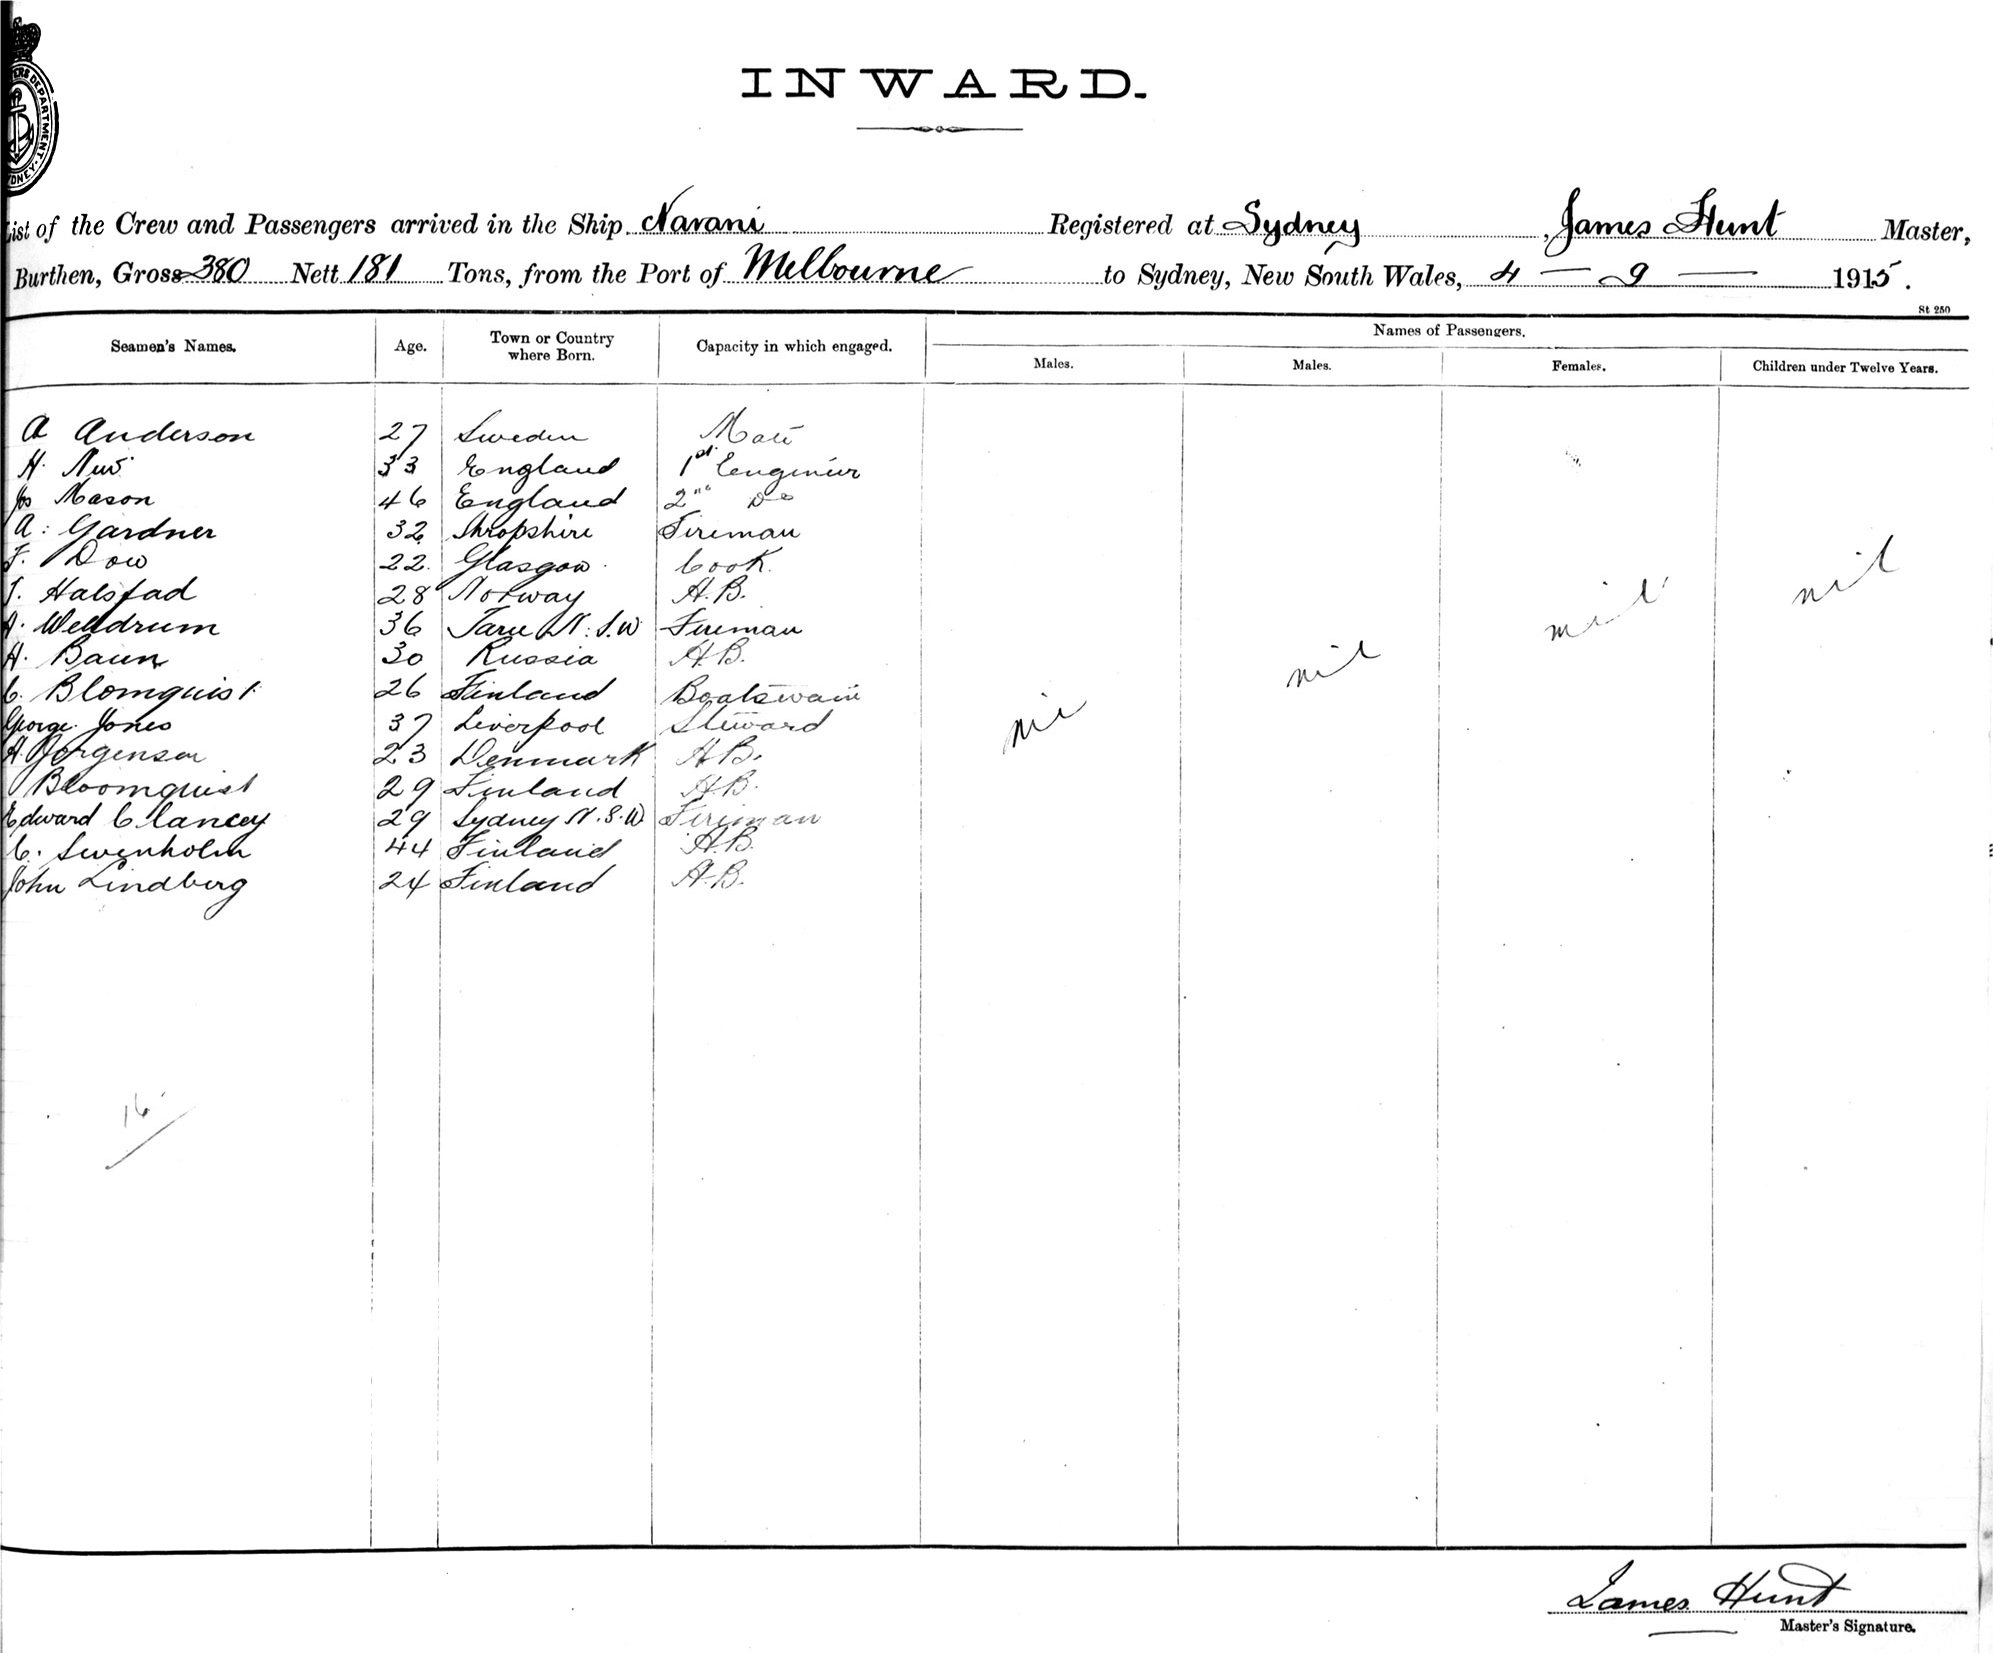 INWARD.
List of the Crew and Passengers arrived in the Ship Navani Registered at Sydney, James Hunt Master,
Burthen, Gross 380 Nett 181 Tons, from the Port of Melbourne to Sydney, New South Wales, 4 — 9 — 1915.
St 250
Seamen's Names. Age. Town or Country where Born. Capacity in which engaged. Names of Passengers.
Males. Males. Females. Children under Twelve Years.
A Anderson 27 Sweden Mate
H. 33 England 1st Engineer
Jos Mason 46 England 2nd Do
A. Gardner 32 Shropshire Fireman
F. Dow 22 Glasgow Cook
T. Halstad 28 Norway A.B.
Weldrum 36 Taree N.S.W Fireman
Baun 30 Russia A.B.
C. Blomquist 26 Finland Boatswain
George Jones 37 Liverpool Steward
Jorgensen 23 Denmark A.B.
Bloomquist 29 Finland A.B.
Edward Clancey 29 Sydney N.S.W Fireman
C. Swenholm 44 Finland A.B.
John Lindberg 24 Finland A.B.
nil nil nil nil
16
James Hunt
Master's Signature.